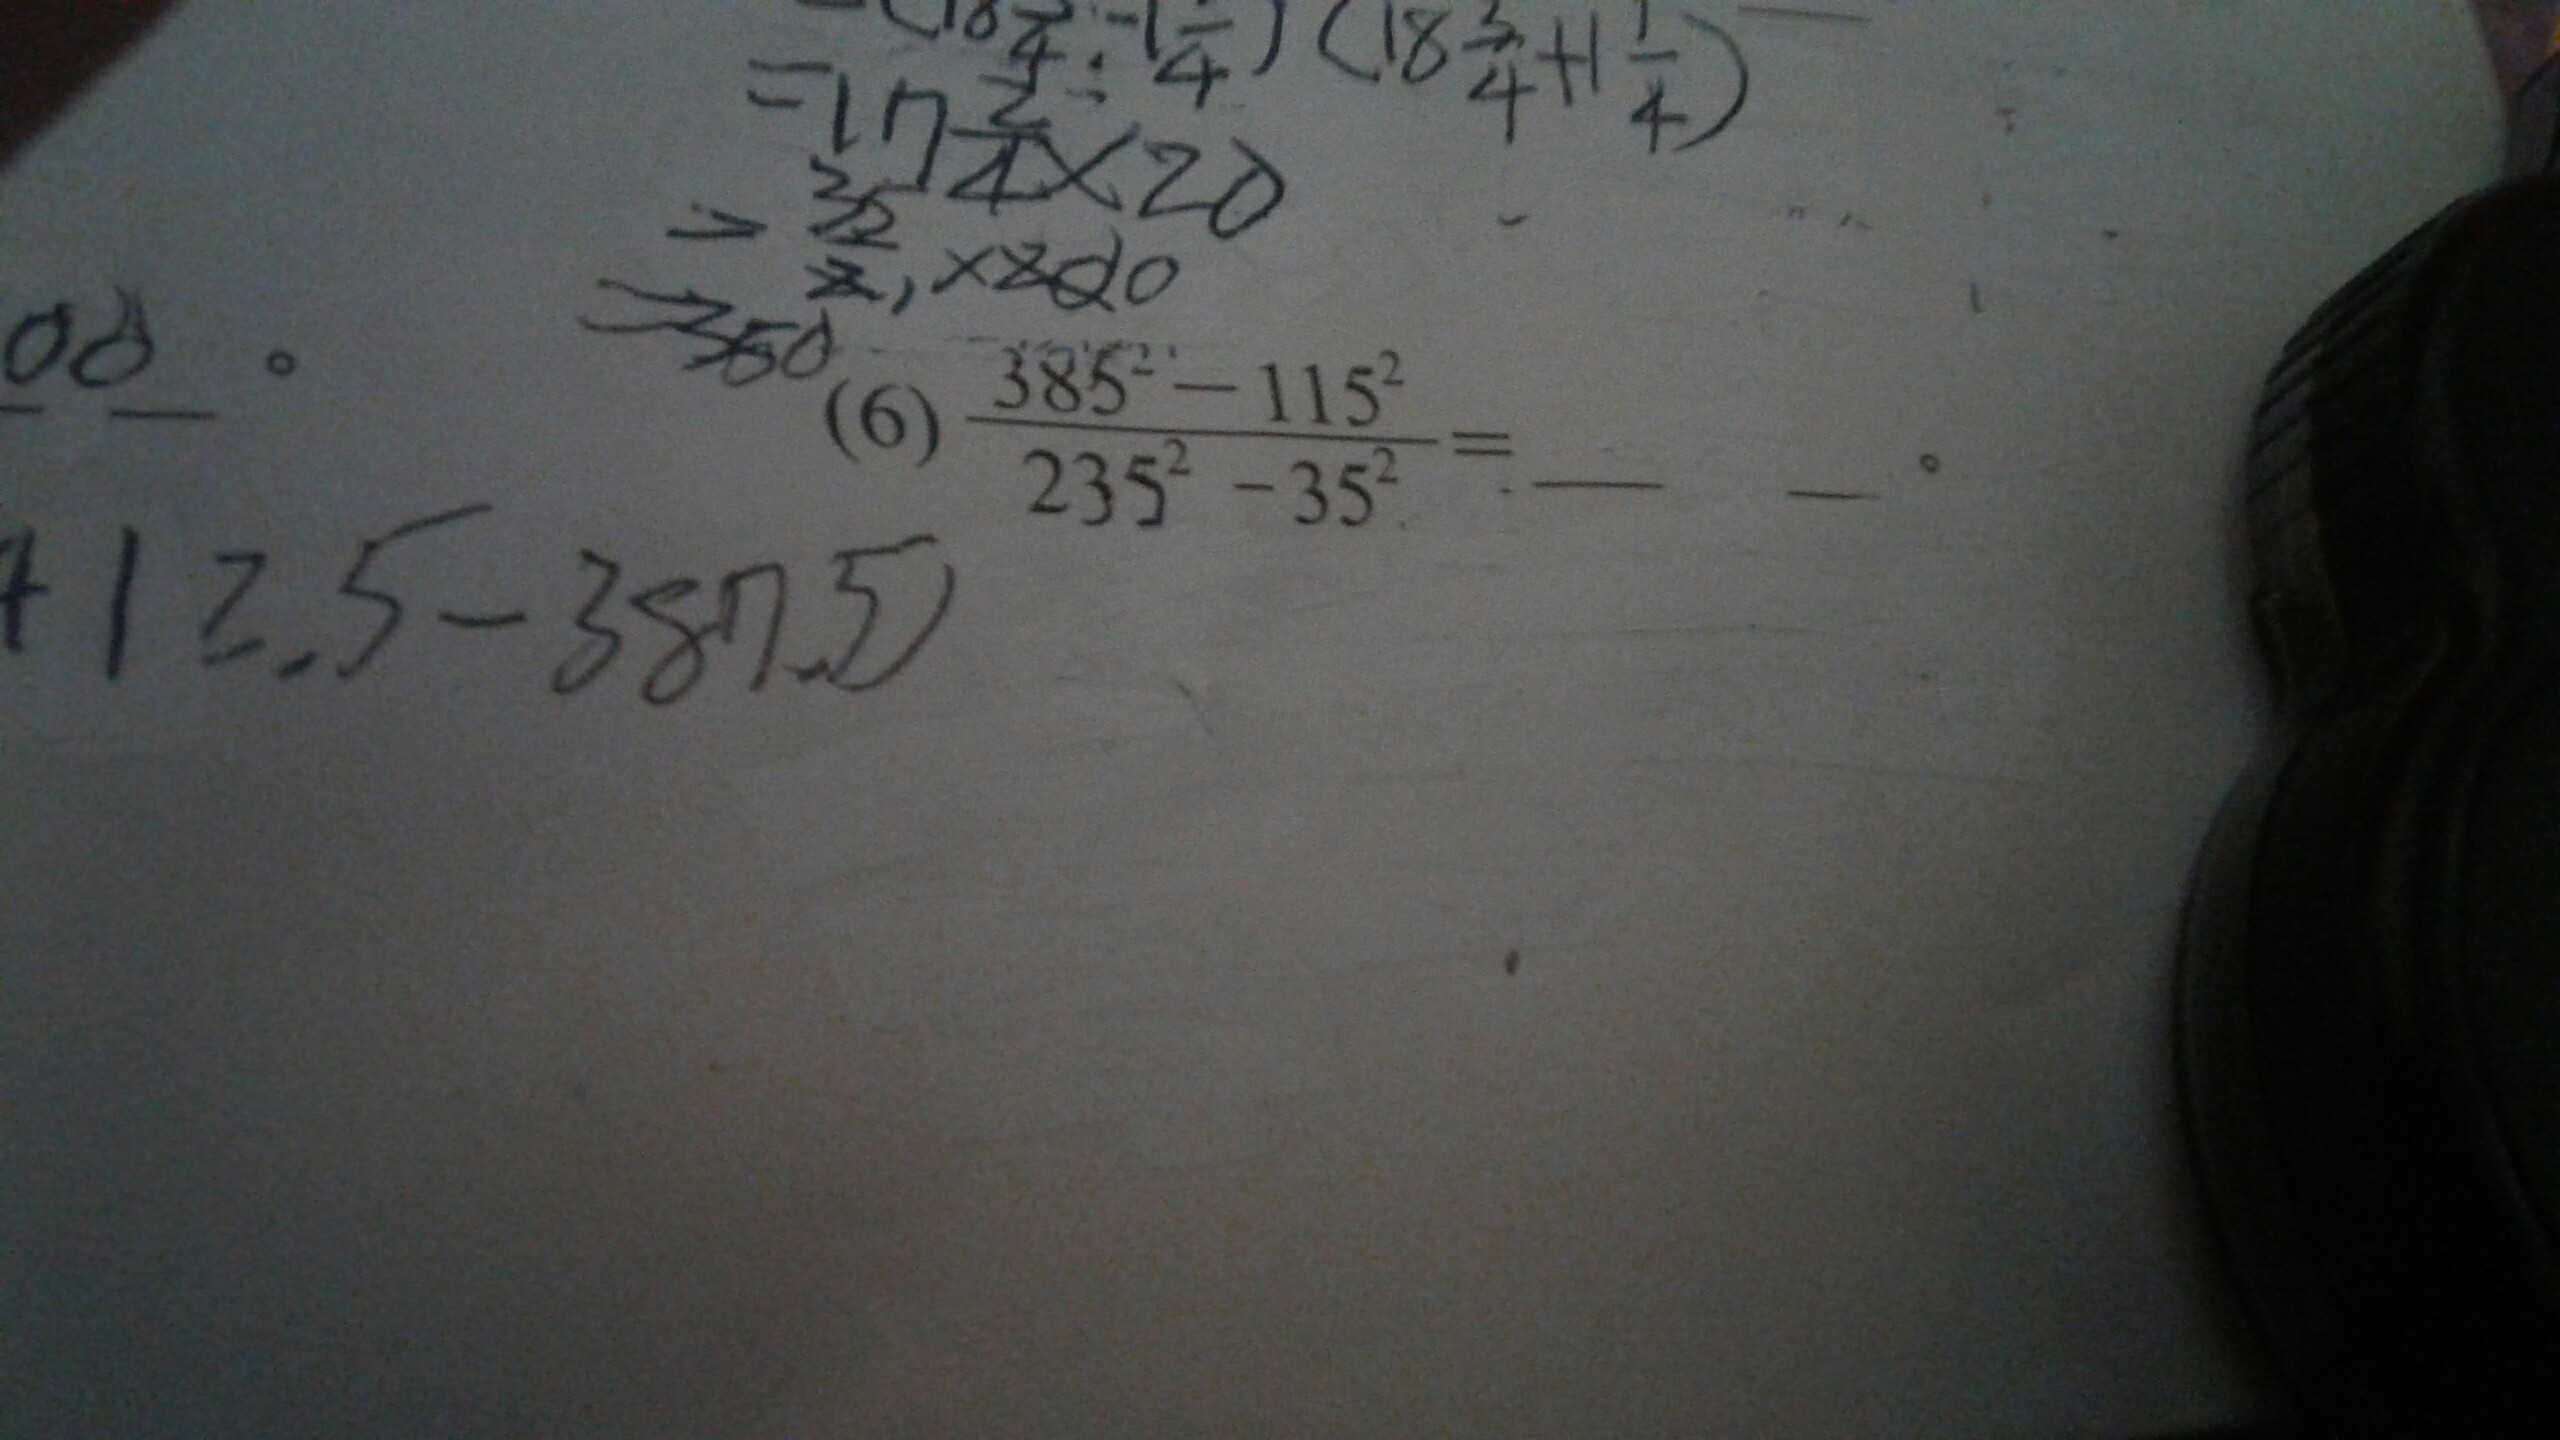 =(18 3/4 - 1 1/4)(18 3/4 + 1 1/4)
= 17 2/4 × 20
350
00 。
(6) (385² − 115²)/(235² − 35²) = __ __ 。
+12.5−387.5)